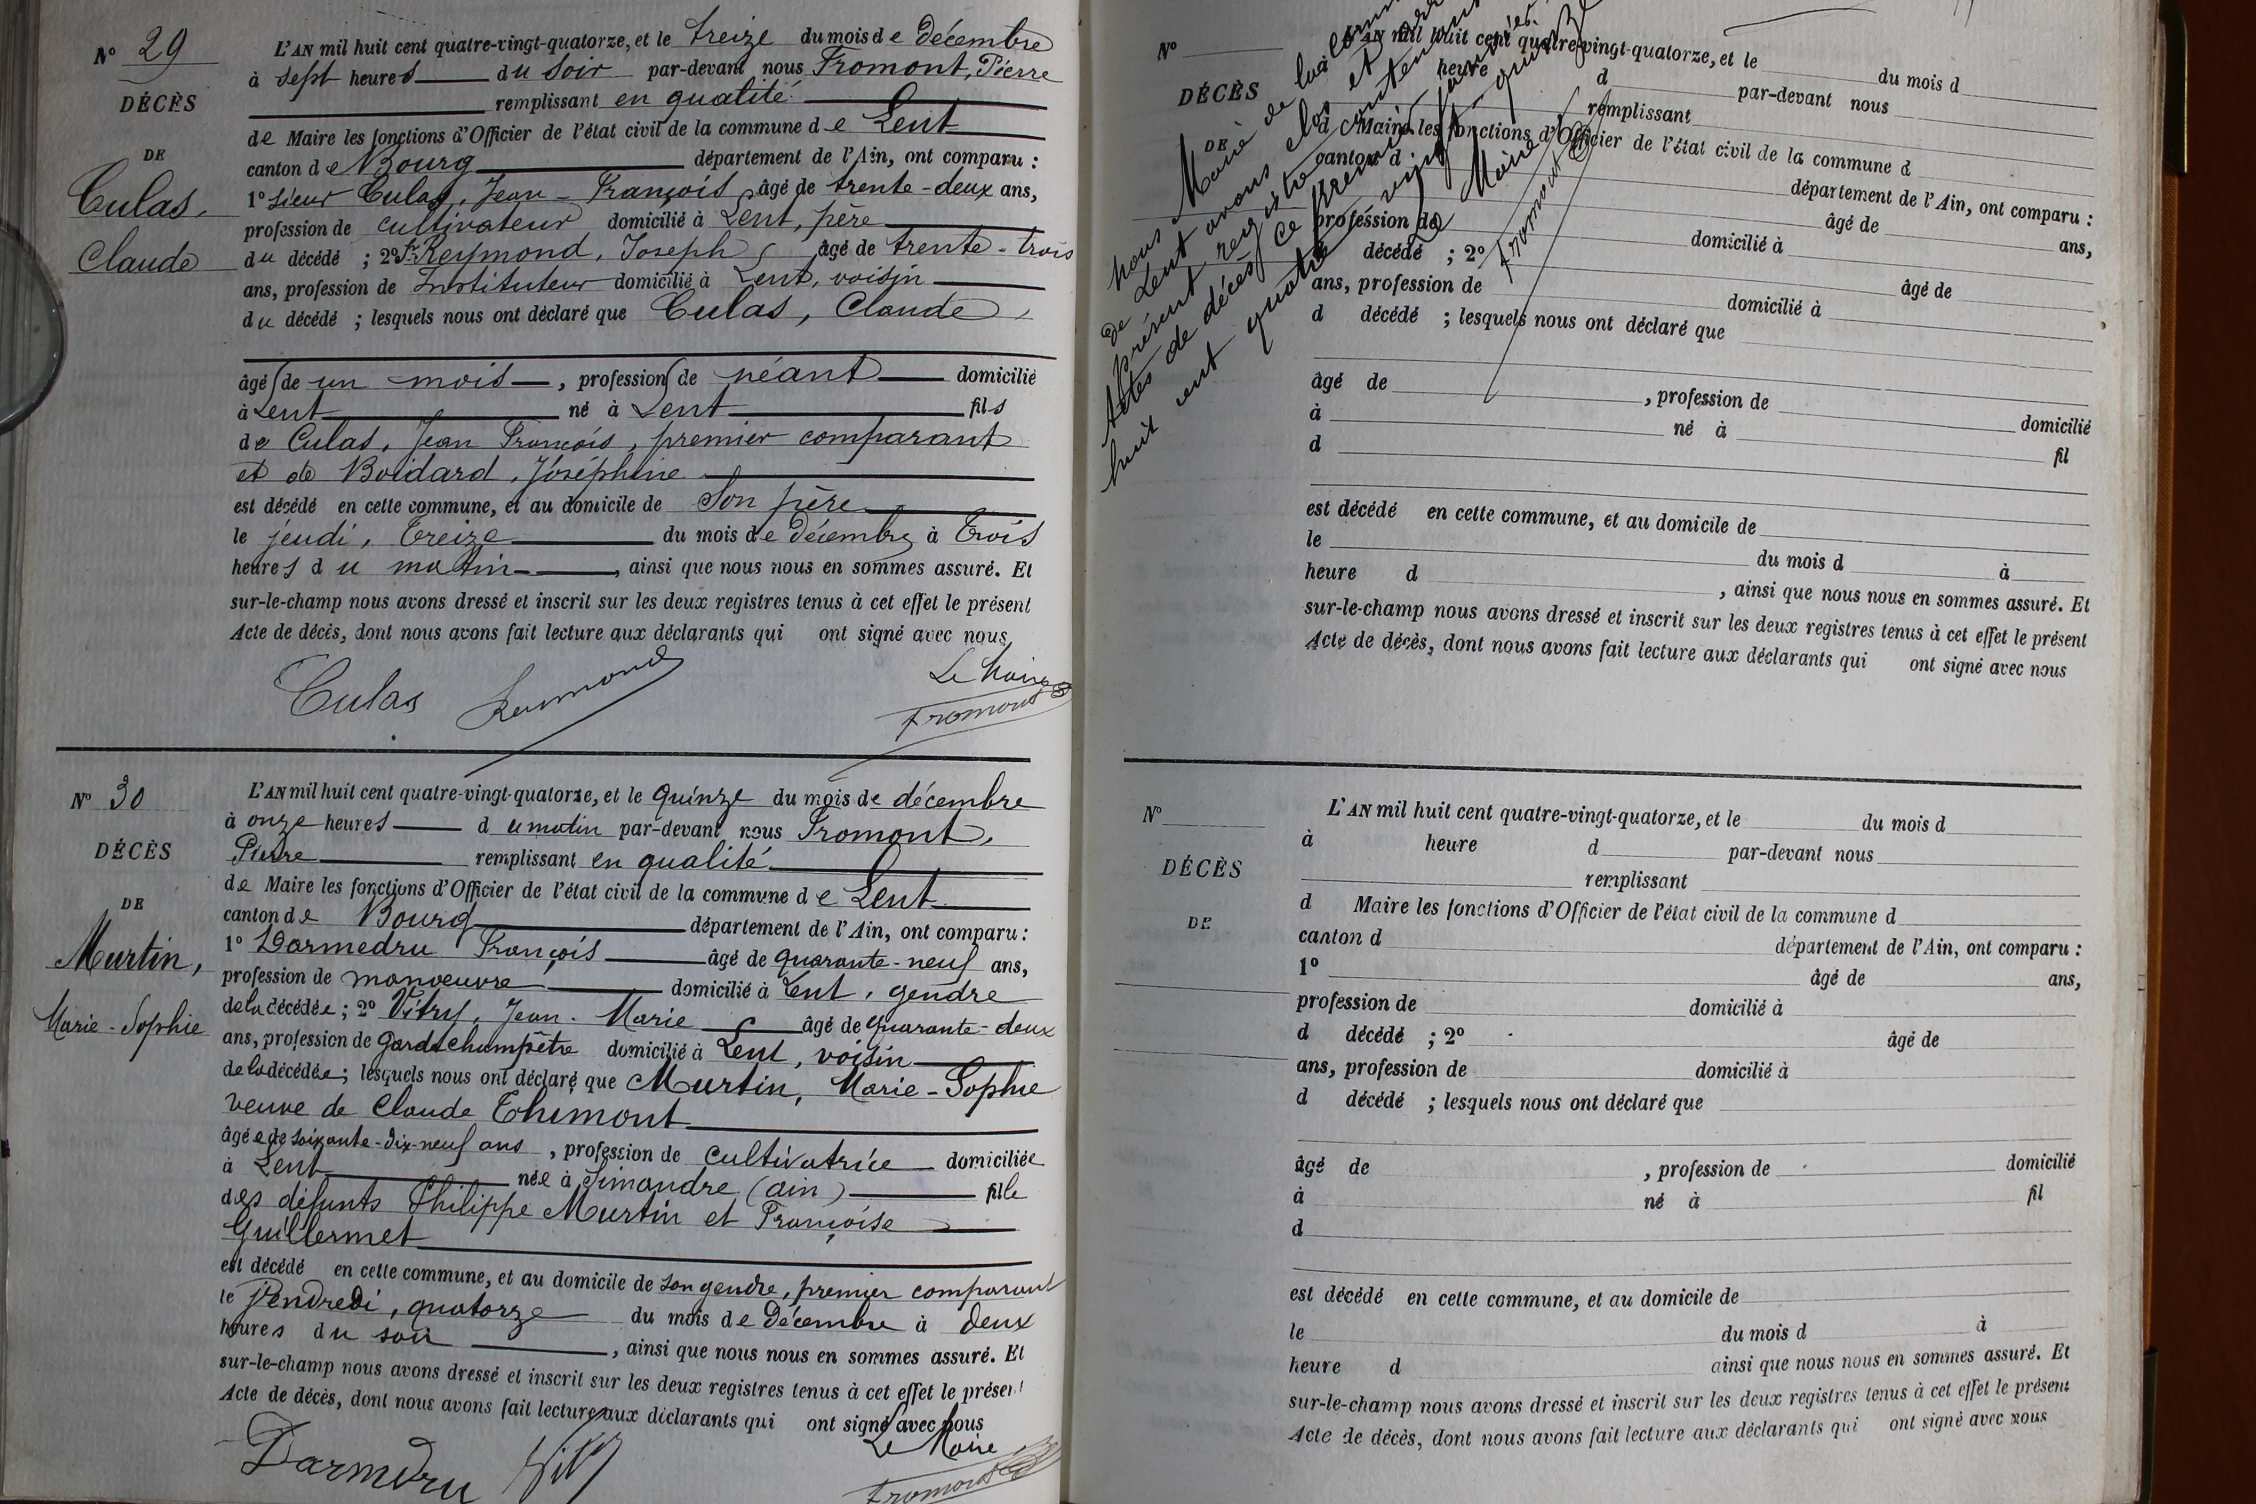 N° 29
DÉCÈS
DE
Culas,
Claude
L'AN mil huit cent quatre-vingt-quatorze, et le treize du mois de décembre
à sept heures du soir par-devant nous Fromont, Pierre
remplissant en qualité
de Maire les fonctions d'Officier de l'état civil de la commune de Lent
canton de Bourg département de l'Ain, ont comparu :
1° sieur Culas, Jean-François, âgé de trente-deux ans,
profession de cultivateur domicilié à Lent, père
du décédé ; 2° Sr Reymond, Joseph, âgé de trente-trois
ans, profession de Instituteur domicilié à Lent, voisin
du décédé ; lesquels nous ont déclaré que Culas, Claude,
âgé de un mois, profession de néant domicilié
à Lent né à Lent fils
de Culas, Jean François, premier comparant
et de Boidard, Joséphine
est décédé en cette commune, et au domicile de son père
le jeudi, treize du mois de décembre à trois
heures du matin, ainsi que nous nous en sommes assuré. Et
sur-le-champ nous avons dressé et inscrit sur les deux registres tenus à cet effet le présent
Acte de décès, dont nous avons fait lecture aux déclarants qui ont signé avec nous
Culas Reymond Le Maire
Fromont
N° 30
DÉCÈS
DE
Murtin,
Marie-Sophie
L'AN mil huit cent quatre-vingt-quatorze, et le quinze du mois de décembre
à onze heures du matin par-devant nous Fromont,
Pierre remplissant en qualité
de Maire les fonctions d'Officier de l'état civil de la commune de Lent
canton de Bourg département de l'Ain, ont comparu :
1° Darmedru François âgé de quarante-neuf ans,
profession de manoeuvre domicilié à Lent, gendre
de la décédée ; 2° Vitry, Jean-Marie âgé de quarante-deux
ans, profession de garde champêtre domicilié à Lent, voisin
de la décédée ; lesquels nous ont déclaré que Murtin, Marie-Sophie
veuve de Claude Thimont
âgée de soixante-dix-neuf ans, profession de cultivatrice domiciliée
à Lent née à Simandre (ain) fille
des défunts Philippe Murtin et Françoise
Guillermet
est décédé en cette commune, et au domicile de son gendre, premier comparant
le Vendredi, quatorze du mois de Décembre à deux
heures du soir, ainsi que nous nous en sommes assuré. Et
sur-le-champ nous avons dressé et inscrit sur les deux registres tenus à cet effet le présent
Acte de décès, dont nous avons fait lecture aux déclarants qui ont signé avec nous
Darmedru Vitry Le Maire
Fromont
nous Maire de la commune
de Lent avons clos et arrêté
présent registre contenant
Actes de décès ce premier janvier
huit cent quatre vingt-quinze
Le Maire
Fromont
N°
DÉCÈS
DE
L'AN mil huit cent quatre-vingt-quatorze, et le du mois d
heure d par-devant nous
remplissant
d Maire les fonctions d'Officier de l'état civil de la commune d
canton d département de l'Ain, ont comparu :
âgé de ans,
profession de domicilié à
décédé ; 2° âgé de
ans, profession de domicilié à
d décédé ; lesquels nous ont déclaré que
âgé de , profession de domicilié
à né à fil
d
est décédé en cette commune, et au domicile de
le du mois d à
heure d , ainsi que nous nous en sommes assuré. Et
sur-le-champ nous avons dressé et inscrit sur les deux registres tenus à cet effet le présent
Acte de décès, dont nous avons fait lecture aux déclarants qui ont signé avec nous
N°
DÉCÈS
DE
L'AN mil huit cent quatre-vingt-quatorze, et le du mois d
à heure d par-devant nous
remplissant
d Maire les fonctions d'Officier de l'état civil de la commune d
canton d département de l'Ain, ont comparu :
1° âgé de ans,
profession de domicilié à
d décédé ; 2° âgé de
ans, profession de domicilié à
d décédé ; lesquels nous ont déclaré que
âgé de , profession de domicilié
à né à fil
d
est décédé en cette commune, et au domicile de
le du mois d à
heure d ainsi que nous nous en sommes assuré. Et
sur-le-champ nous avons dressé et inscrit sur les deux registres tenus à cet effet le présent
Acte de décès, dont nous avons fait lecture aux déclarants qui ont signé avec nous